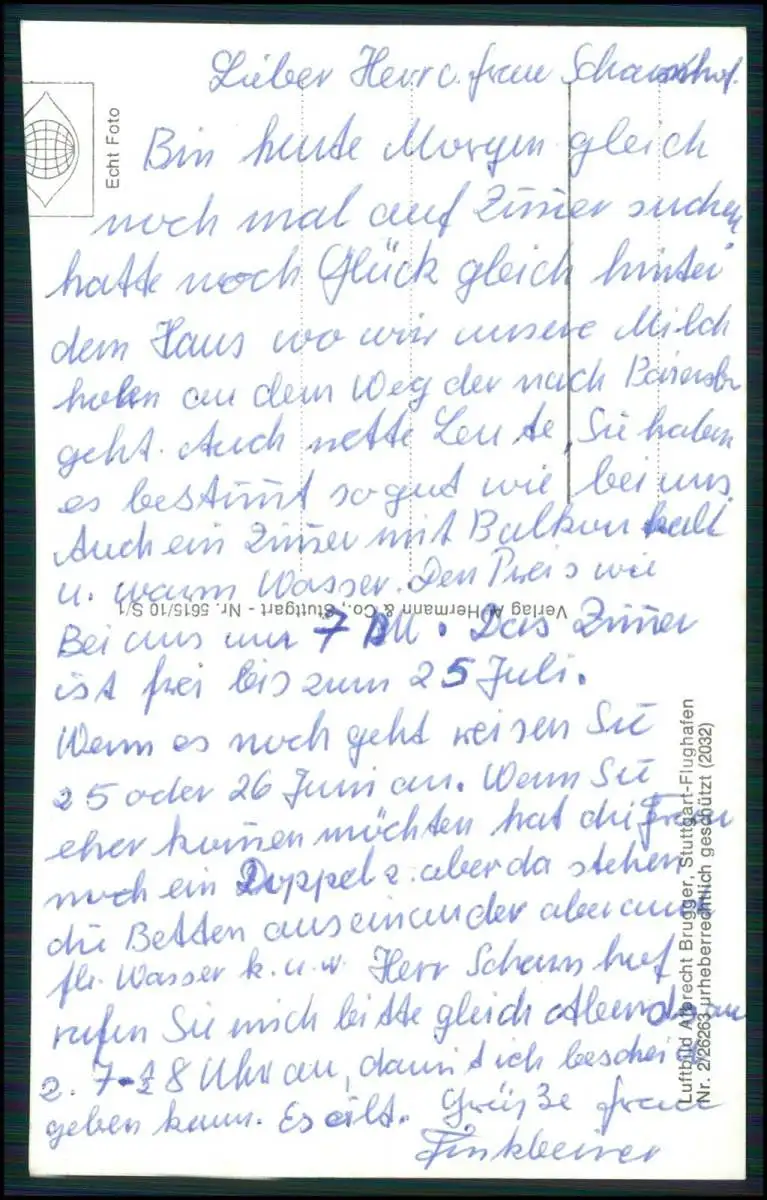 Lieber Herr u. Frau Schaumhof.
Bin heute Morgen gleich
noch mal auf Zimmer suchen
hatte noch Glück gleich hinter
dem Haus wo wir unsere Milch
holen an dem Weg der nach Baiersbr
geht. Auch nette Leute, Sie haben
es bestimmt so gut wie bei uns.
Auch ein Zimmer mit Balkon kalt
u. warm Wasser. Den Preis wie
Bei uns nur 7 DM. Das Zimmer
ist frei bis zum 25 Juli.
Wenn es noch geht reisen Sie
25 oder 26 Juni an. Wenn Sie
eher kommen möchten hat die Frau
noch ein Doppelz. aber da stehen
die Betten auseinander aber auch
fl. Wasser k. u. w. Herr Schaumhof
rufen Sie mich bitte gleich Abends an
z. 7-8 Uhr an, damit ich bescheid
geben kann. Es eilt. Grüße Frau
Finkbeiner
Echt Foto
Verlag A. Hermann & Co., Stuttgart - Nr. 5615/10 S/1
Luftbild Albrecht Brugger, Stuttgart-Flughafen
Nr. 2/26263 urheberrechtlich geschützt (2032)